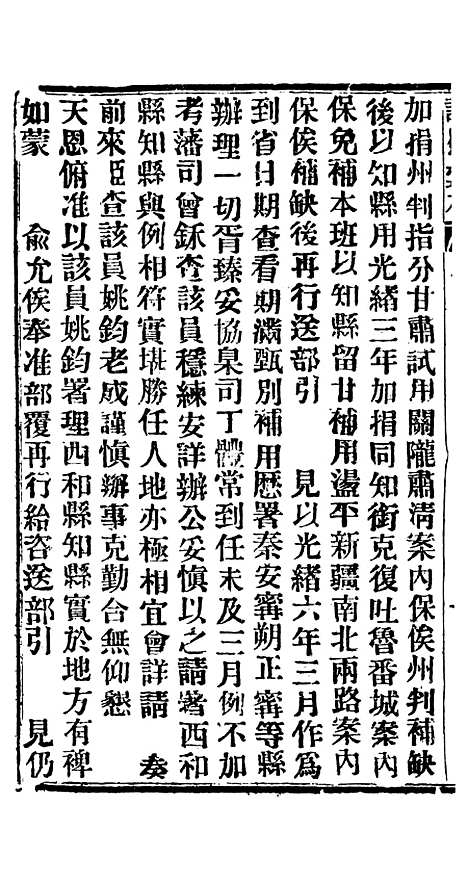 加捐州判指分甘肅試用關隴肅清案內保俟州判補缺
後以知縣用光緒三年加捐同知銜克復吐魯番城案內
保免補本班以知縣留甘補用盪平新疆南北兩路案內
保俟補缺後再行送部引 見以光緒六年三月作為
到省日期查看期滿甄別補用歷署秦安寗朔正寗等縣
辦理一切胥臻妥協臬司丁體常到任未及三月例不加
考藩司曾鉌查該員穩練安詳辦公妥慎以之請署西和
縣知縣與例相符實堪勝任人地亦極相宜會詳請 奏
前來臣查該員姚鈞老成謹慎辦事克勤合無仰懇
天恩俯准以該員姚鈞署理西和縣知縣實於地方有裨
如蒙 俞允俟奉准部覆再行給咨送部引 見仍